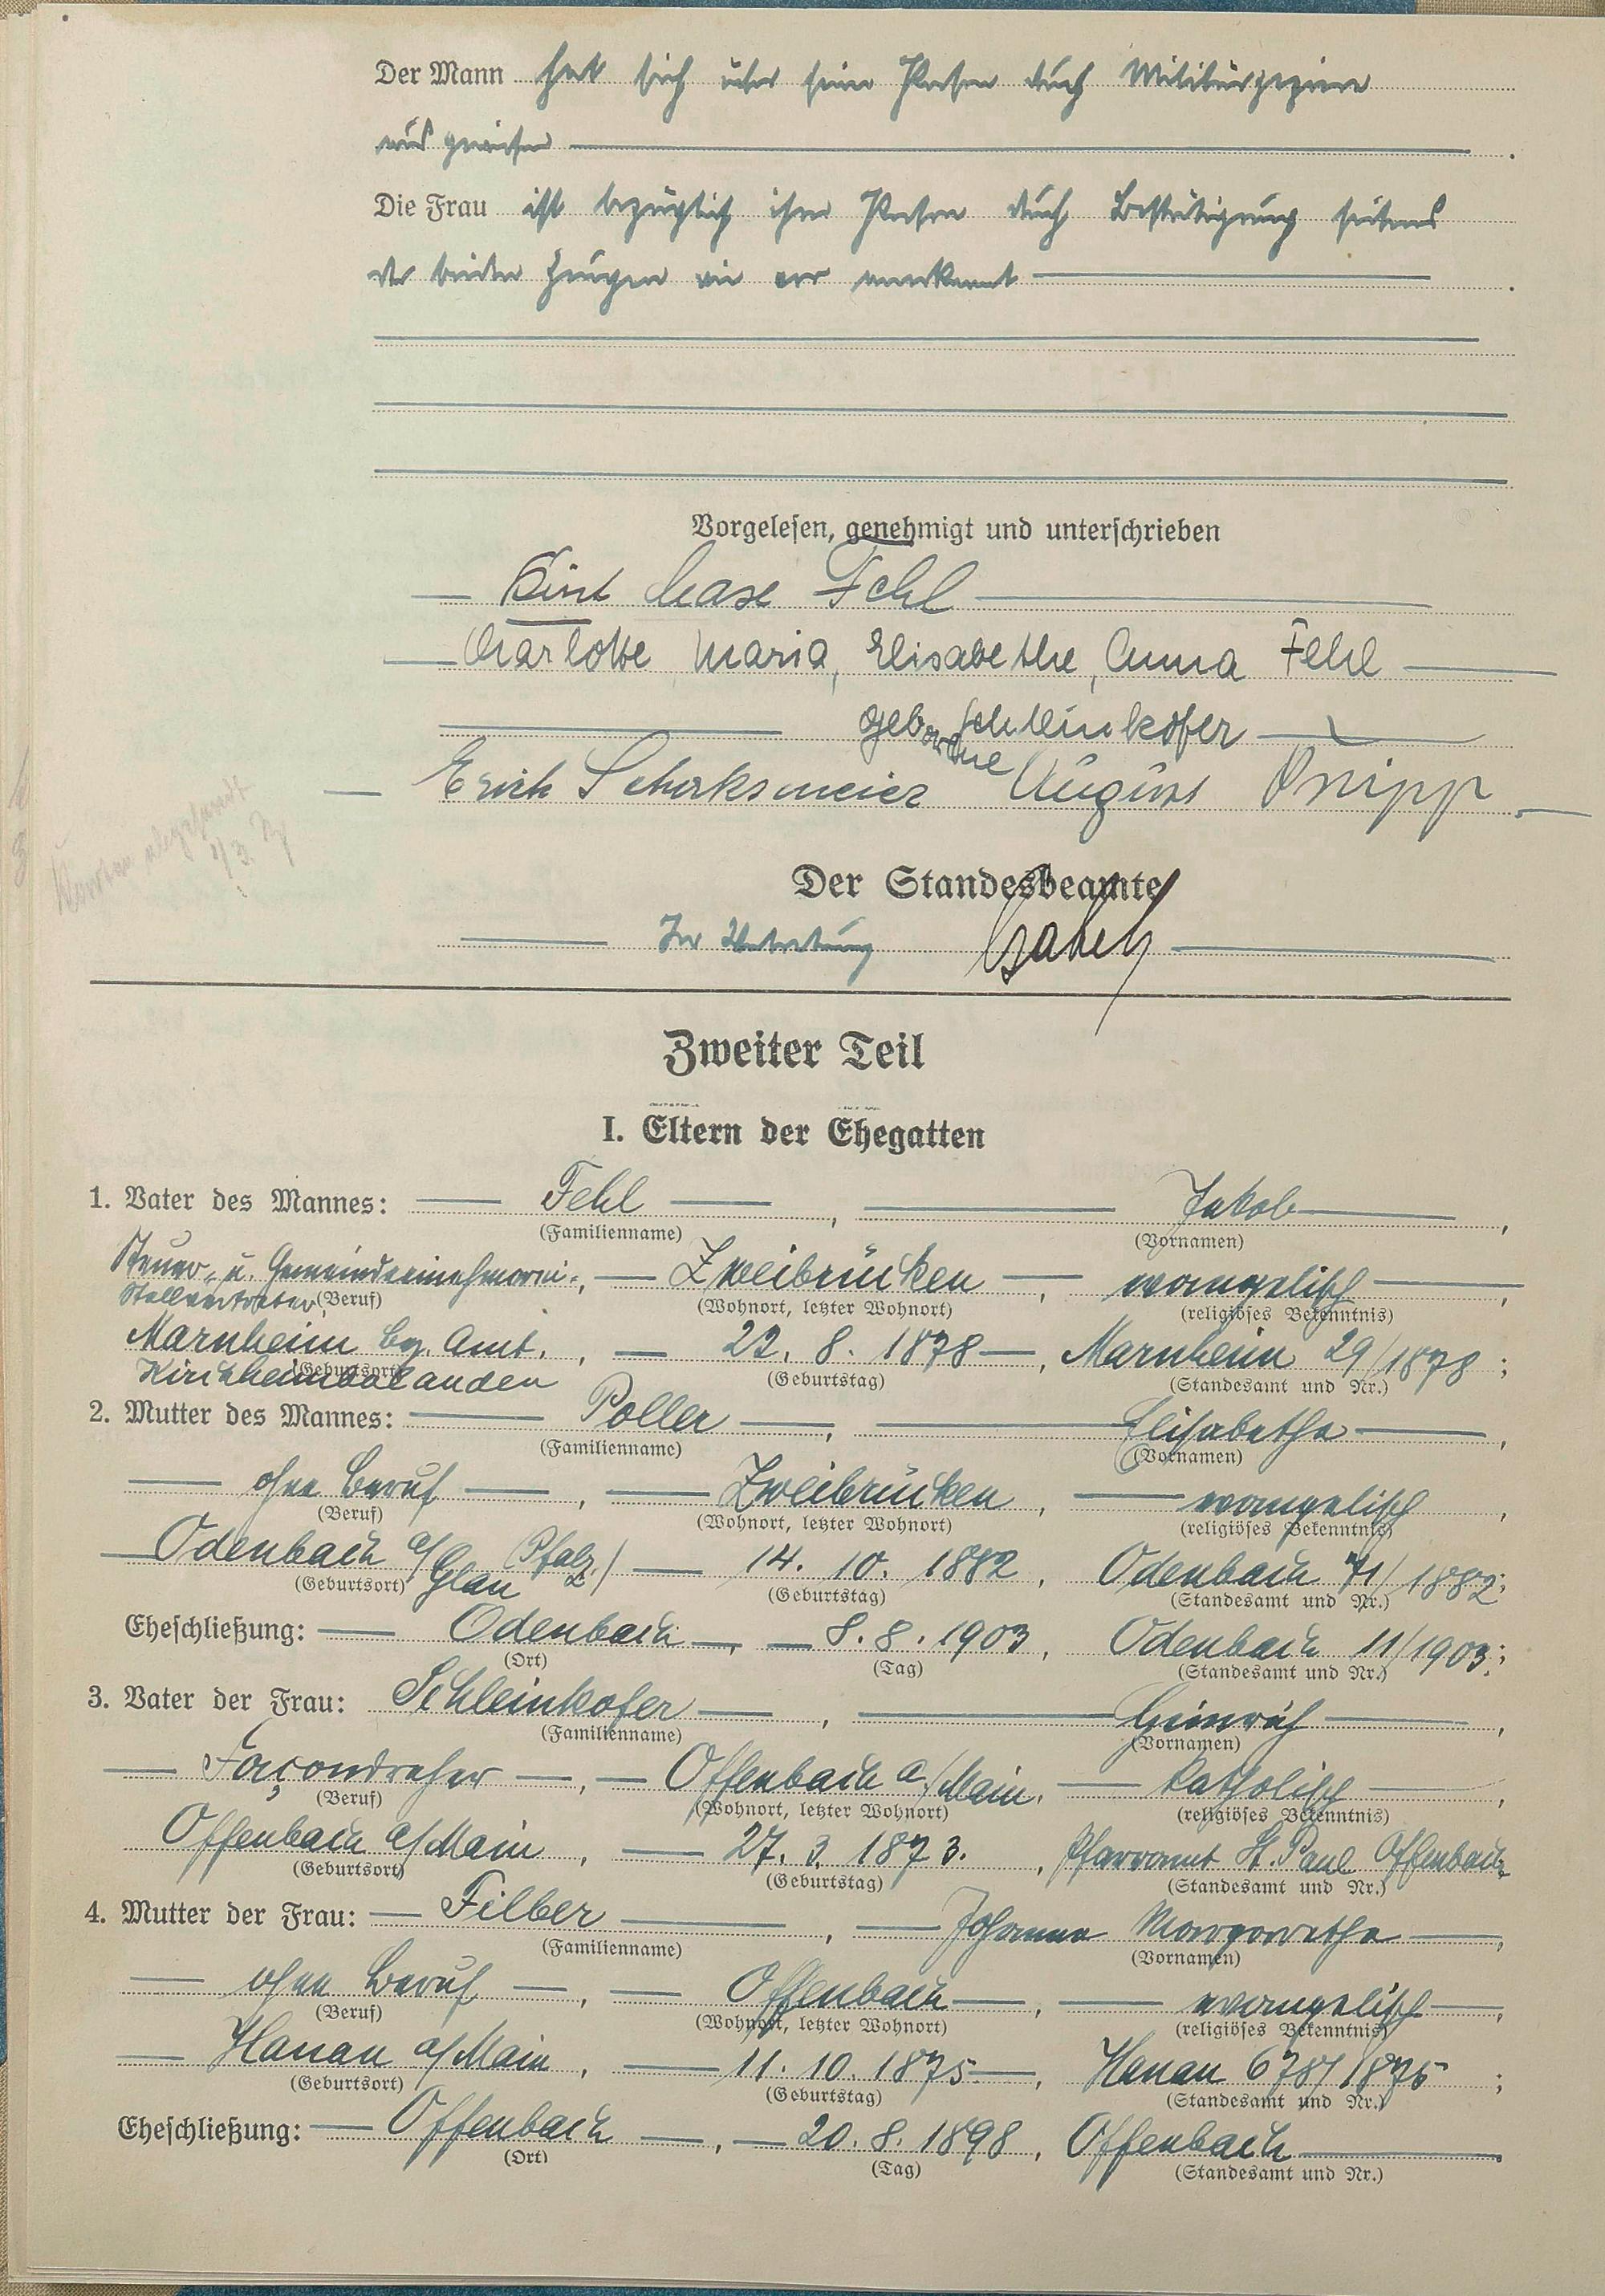 Der Mann hat sich über seine Person durch Militärpapiere
ausgewiesen.
Die Frau ist bezüglich ihrer Person durch Bestätigung seitens
der beiden Zeugen wie vor anerkannt.
Vorgelesen, genehmigt und unterschrieben
Fehl
Charlotte, Maria, Elisabethe, Anna Fehl
geborene Schleinkofer
Erich August
Der Standesbeamte
In Vertretung
Zweiter Teil
I. Eltern der Ehegatten
1. Vater des Mannes: Fehl, Jakob,
(Familienname) (Vornamen)
Steuer- u. Gemeindeeinnehmerei-, Zweibrücken, evangelisch,
Stellvertreter (Beruf) (Wohnort, letzter Wohnort) (religiöses Bekenntnis)
Marnheim Bez. Amt., 22. 8. 1878, Marnheim 29/1878;
Kirchheimbolanden (Geburtsort) (Geburtstag) (Standesamt und Nr.)
2. Mutter des Mannes: Poller, Elisabetha,
(Familienname) (Vornamen)
ohne Beruf, Zweibrücken, evangelisch,
(Beruf) (Wohnort, letzter Wohnort) (religiöses Bekenntnis)
Odenbach a/Glan (Pfalz), 14. 10. 1882, Odenbach 71/1882;
(Geburtsort) (Geburtstag) (Standesamt und Nr.)
Eheschließung: Odenbach, 8. 8. 1903, Odenbach 11/1903;
(Ort) (Tag) (Standesamt und Nr.)
3. Vater der Frau: Schleinkofer, Heinrich,
(Familienname) (Vornamen)
Façondreher, Offenbach a/Main, katholisch,
(Beruf) (Wohnort, letzter Wohnort) (religiöses Bekenntnis)
Offenbach a/Main, 27. 3. 1873., Pfarramt St. Paul Offenbach;
(Geburtsort) (Geburtstag) (Standesamt und Nr.)
4. Mutter der Frau: Filber, Johanna Margarethe,
(Familienname) (Vornamen)
ohne Beruf, Offenbach, evangelisch,
(Beruf) (Wohnort, letzter Wohnort) (religiöses Bekenntnis)
Hanau a/Main, 11. 10. 1875, Hanau 678/1875;
(Geburtsort) (Geburtstag) (Standesamt und Nr.)
Eheschließung: Offenbach, 20. 8. 1898, Offenbach.
(Ort) (Tag) (Standesamt und Nr.)